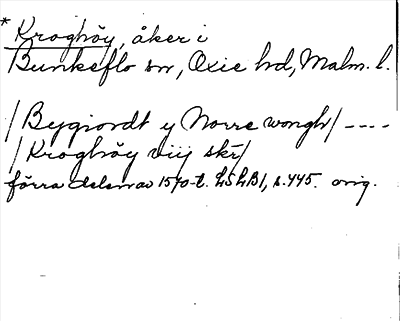 * Kroghöy, åker i
Bunkeflo sn, Oxie hd, Malm. l.
/ Bygiordt y Norre wongh/ ----
/ Kroghöy viij skr/
förra delen av 1570-t. LSLB1, s. 445. orig.